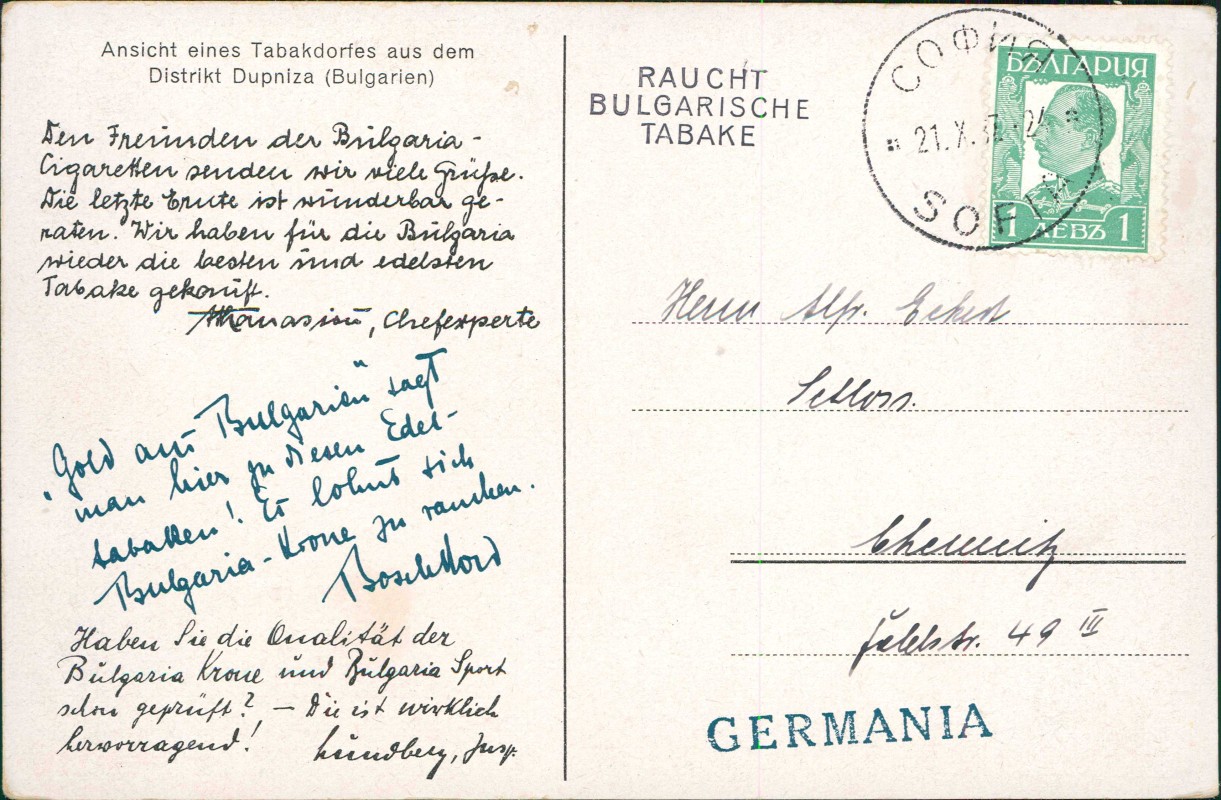 Ansicht eines Tabakdorfes aus dem
Distrikt Dupniza (Bulgarien)
Den Freunden der Bulgaria-
Cigaretten senden wir viele Grüße.
Die letzte Ernte ist wunderbar ge-
raten. Wir haben für die Bulgaria
wieder die besten und edelsten
Tabake gekauft.
Athanasiou, Chefexperte
"Gold aus Bulgarien" sagt
man hier zu diesen Edel-
tabaken! Es lohnt sich
Bulgaria-Krone zu rauchen.
Haben Sie die Qualität der
Bulgaria Krone und Bulgaria Sport
schon geprüft? – Die ist wirklich
hervorragend!
Lundberg, Insp.
RAUCHT
BULGARISCHE
TABAKE
СОФИЯ
21.X.32.-24
SOFIA
БЪЛГАРИЯ
1 ЛЕВЪ 1
Herrn Alfr. Eckert
Schloss.
Chemnitz
49 III
GERMANIA